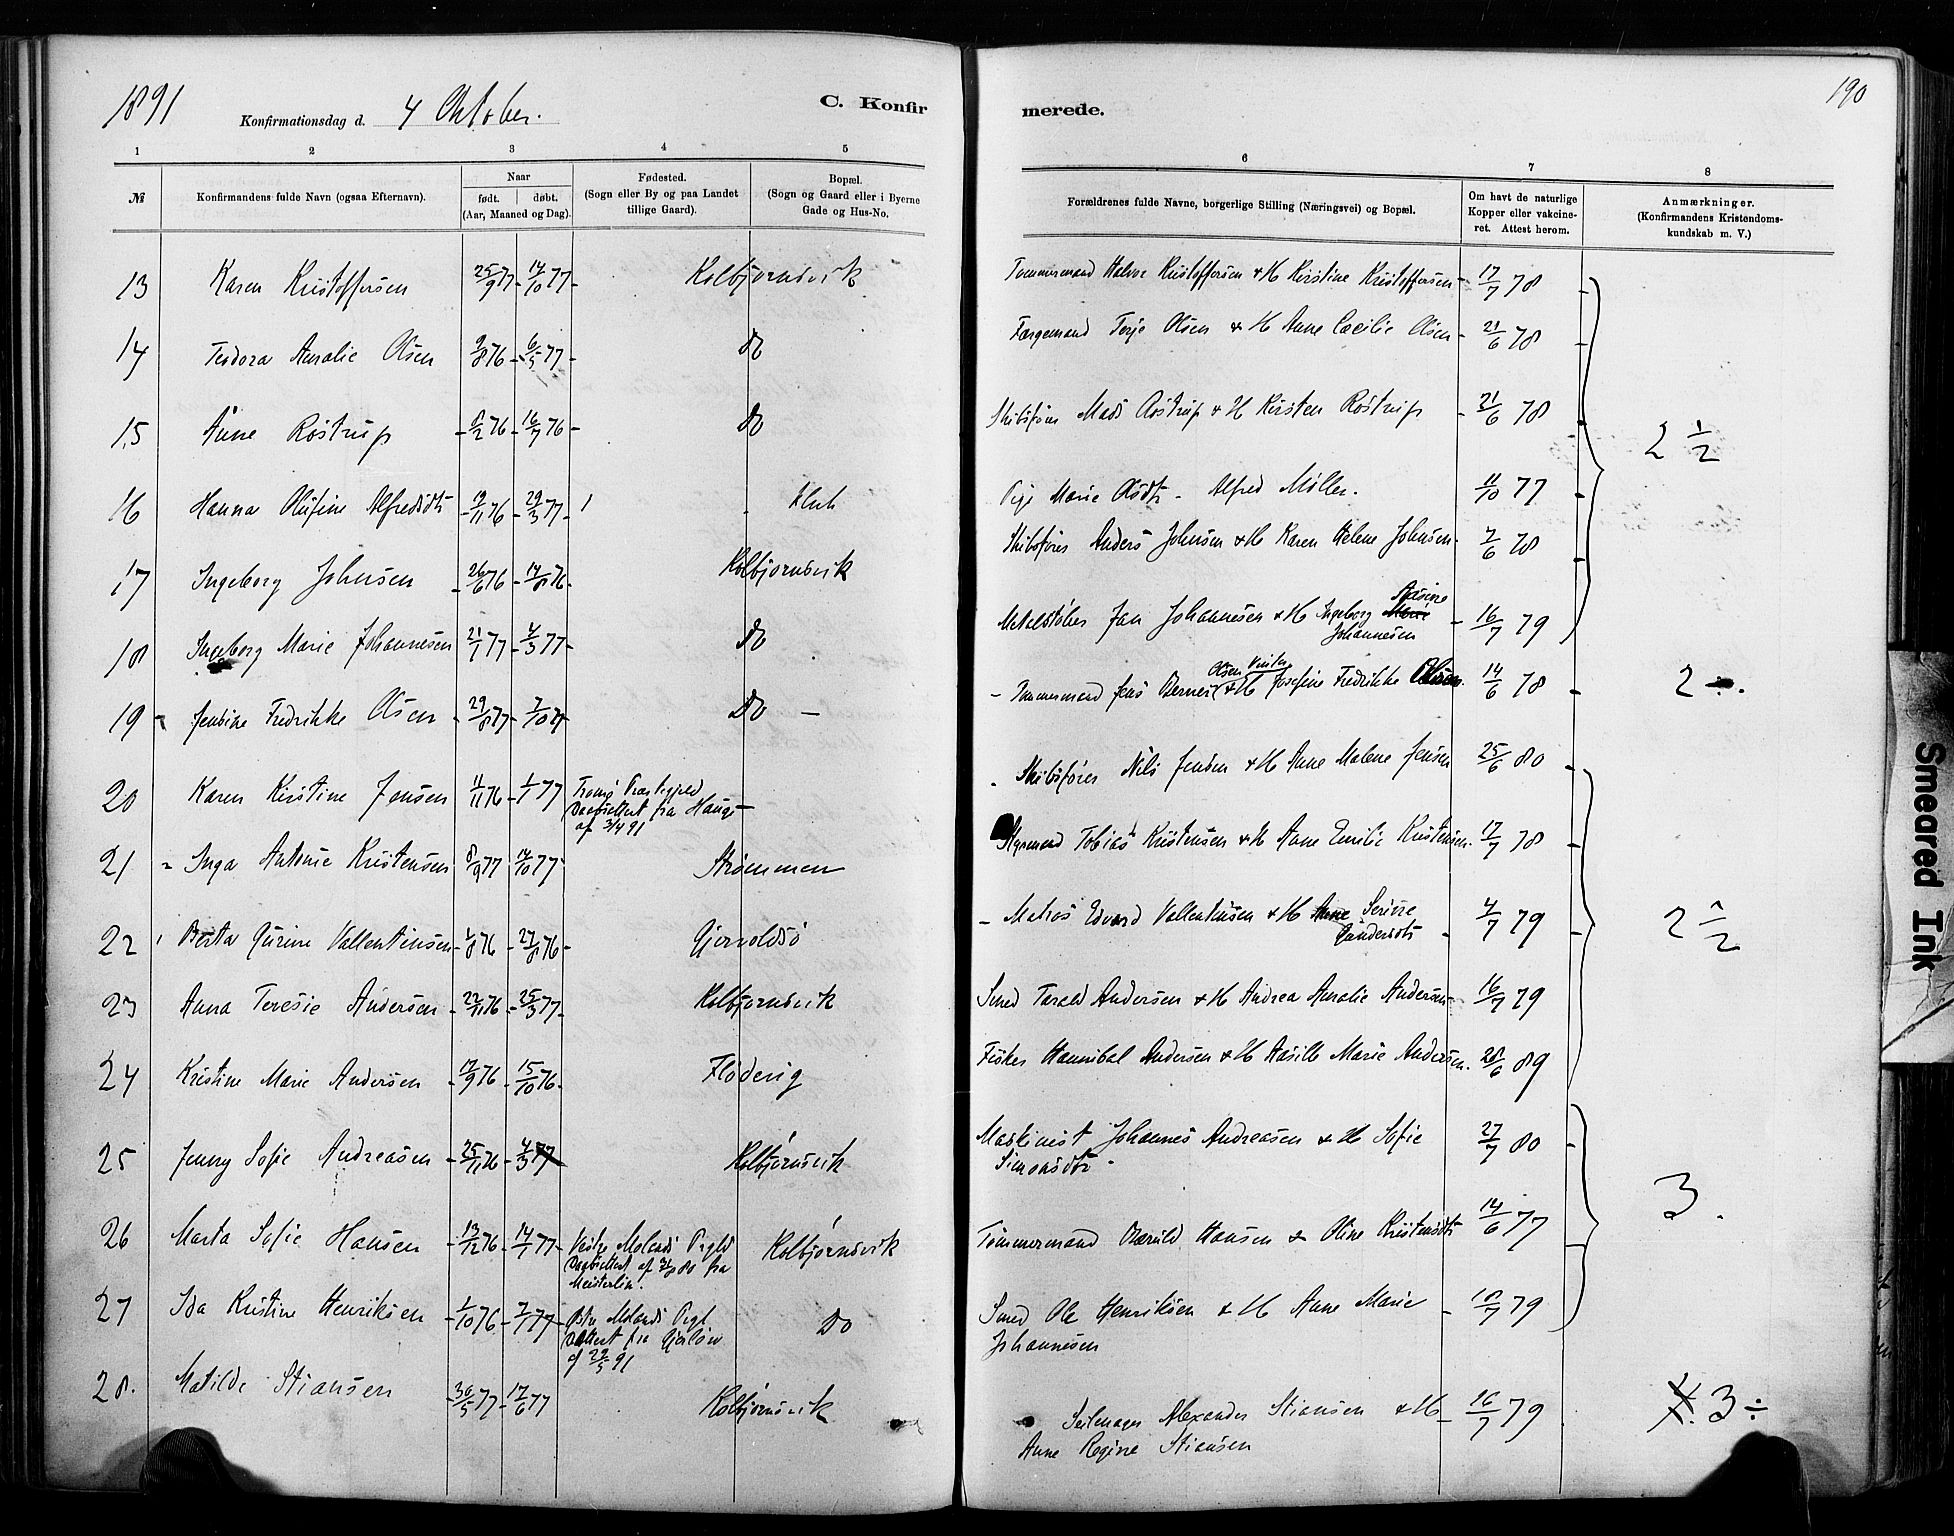 1891
Konfirmationsdag d. 4 Oktober.
C. Konfir
merede.
190
1 2 3 4 5
6 7 8
№
Konfirmandens fulde Navn (ogsaa Efternavn).
Naar
født. døbt.
(Aar, Maaned og Dag).
Fødested.
(Sogn eller By og paa Landet
tillige Gaard).
Bopæl.
(Sogn og Gaard eller i Byerne
Gade og Hus-No.
Forældrenes fulde Navne, borgerlige Stilling (Næringsvei) og Bopæl.
Om havt de naturlige
Kopper eller vakcine-
ret. Attest herom.
Anmærkninger.
(Konfirmandens Kristendoms-
kundskab m. V.)
13 Karen Kristoffersen 25/9 77 14/10 77 Kolbjornsvik Tommermand Halvor Kristoffersen & H Kirstine Kristoffersen 17/7 78
14 Teodora Amalie Olsen 9/8 76 6/5 77 do Færgemand Terje Olsen & H Anne Cæcilie Olsen 21/6 78
15 Anne Rostrup 8/2 76 16/7 76 do Skibsfører Mads Rostrup & H Kirsten Rostrup 21/6 78
2 1/2
16 Hanna Olufine Alfredsdtr 19/11 76 29/3 77 Pige Marie Olsdtr - Alfred Møller. 11/10 77
17 Ingeborg Johnsen 26/6 76 14/8 76 Kolbjornsvik Skibsfører Anders Johnsen & H Karen Helene Johnsen 7/6 78
18 Ingeborg Marie Johannesen 21/1 77 4/3 77 do Metalstøber Jan Johannesen & H Ingeborg Marie Johannesen 16/7 79
19 Jensine Fredrikke Olsen 29/8 77 7/10 77 do Tømmermand Jens Olsen & H Josefine Fredrikke Olsen. 14/6 78 2 ÷.
20 Karen Kirstine Jensen 11/11 76 1/1 77 Tromø Præstegjeld
Daabsattest fra Hauge
af 3/4 91
Skibsfører Nils Jensen & H Anne Malene Jensen 25/6 80
21 Inga Antonie Kristensen 8/9 77 14/10 77 Strømmen Styrmand Tobias Kristensen & H Anne Emilie Kristensen. 17/7 78
22 Berta Gurine Vallentinsen 1/8 76 27/8 76 Gjervoldsø Matros Edvard Vallentinsen & H Anne Serine
Gundersdtr 4/7 79
2 1/2
23 Anna Teresie Andersen 22/11 76 25/3 77 Kolbjornsvik Smed Tarald Andersen & H Andrea Amalie Andersen 16/7 79
24 Kristine Marie Andersen 17/9 76 15/10 76 Flødevig Fisker Hannibal Andersen & H Aasille Marie Andersen. 28/6 89
25 Jenny Sofie Andreasen 25/11 76 4/3 77 Kolbjornsvik Maskinist Johannes Andreasen & H Sofie
Simonsdtr
27/7 80
3.
26 Marta Sofie Hansen 13/12 76 14/1 77 Vestre Molands Pgjld
Kolbjornsvik Tømmermand Hansen & Oline Kristensdtr 14/6 77
27 Ida Kristine Henriksen 1/10 76 7/1 77 Molands Pgjl
af 22/5 91
Do Smed Ole Henriksen & H Anne Marie
Johannesen
18/7 79
28. Matilde Stiansen 30/5 77 17/6 77 Kolbjornsvik Seilmager Alexander Stiansen & H
Anne Regine Stiansen
16/7 79
3 ÷
Smeared Ink